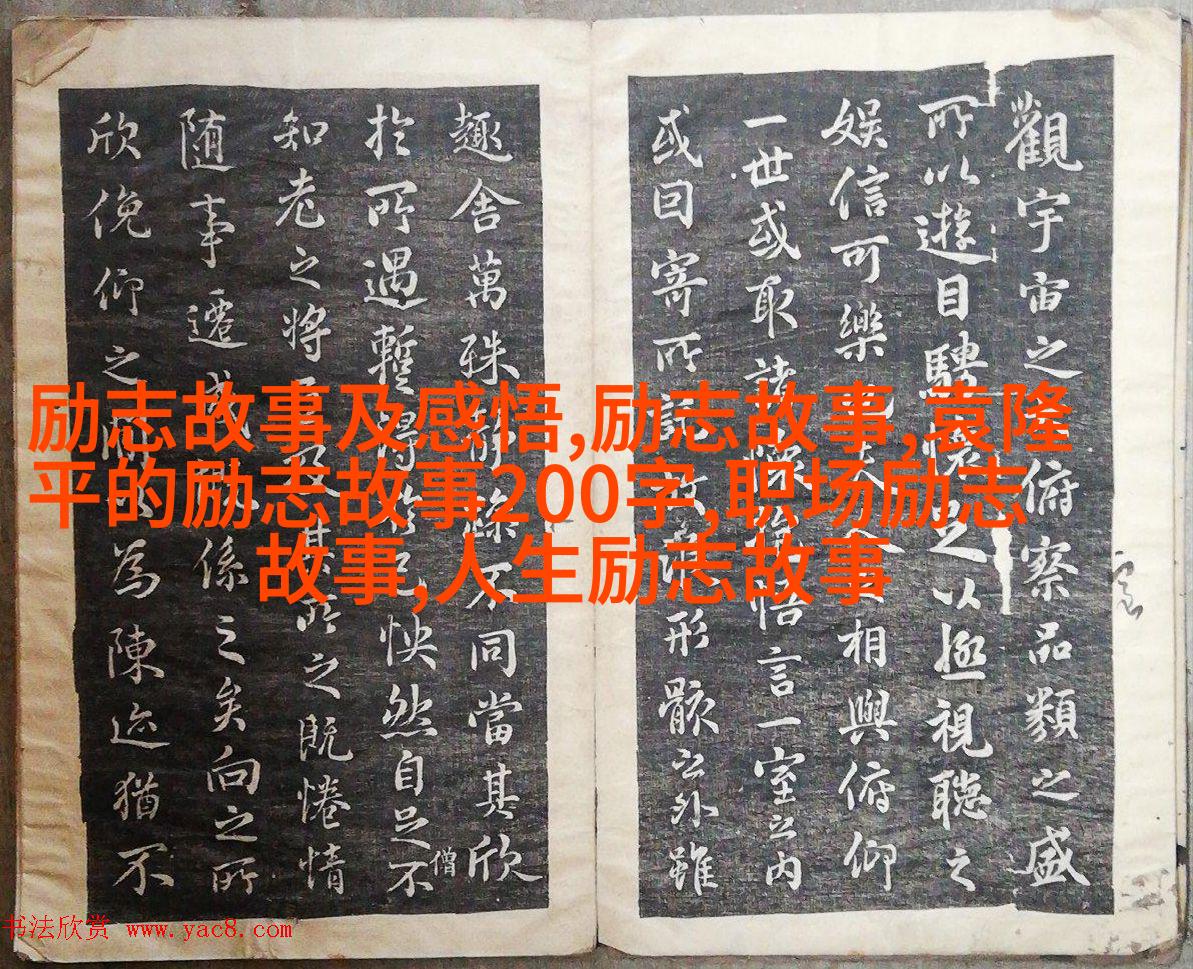 励志故事及感悟,励志故事,袁隆
平的励志故事200字,职场励志
故事,人生励志故事
觀宇宙之俯察品類之盛
所以遊目騁懷足以極視聽之
娛信可樂也夫人之相與俯仰
一世或取諸懷抱悟言一室之內
或因寄所託放浪形骸之外雖
趣舍萬殊靜躁不同當其欣
於所遇暫得於己怏然自足不
僧
知老之將至及其所之既惓情
随事遷感慨係之矣向之所
欣俛仰之間以為陳迹猶不
书法欣赏 www.yac8.com